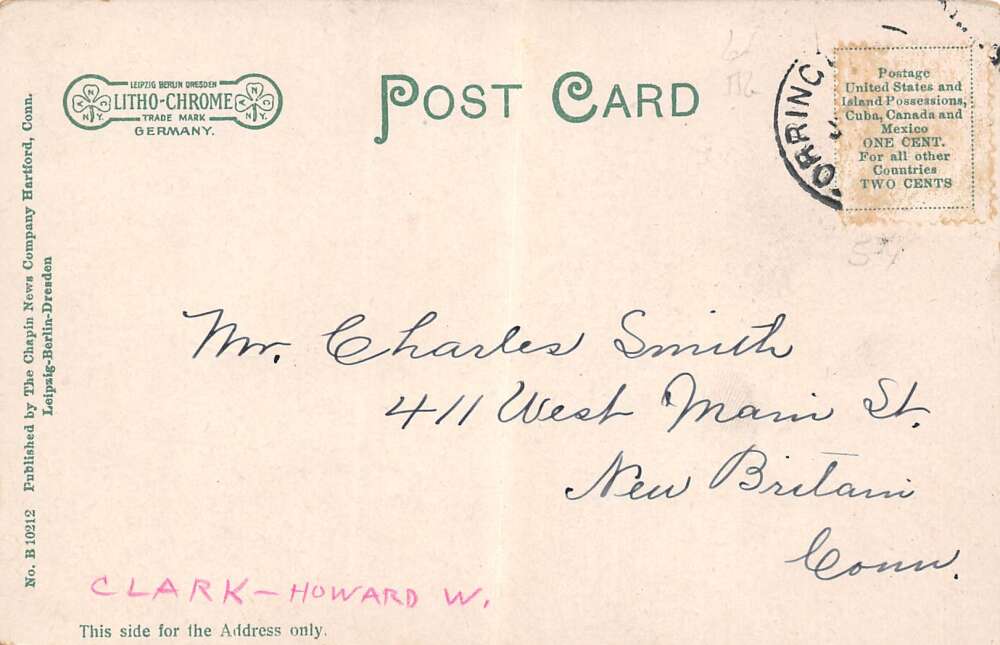 LEIPZIG BERLIN DRESDEN
LITHO-CHROME
TRADE MARK
GERMANY.
POST CARD
Postage
United States and
Island Possessions,
Cuba, Canada and
Mexico
ONE CENT.
For all other
Countries
TWO CENTS
No. B 10212 Published by The Chapin News Company Hartford, Conn.
Leipzig-Berlin-Dresden
Mr. Charles Smith
411 West Main St.
New Britain
Conn.
CLARK - HOWARD W.
This side for the Address only.